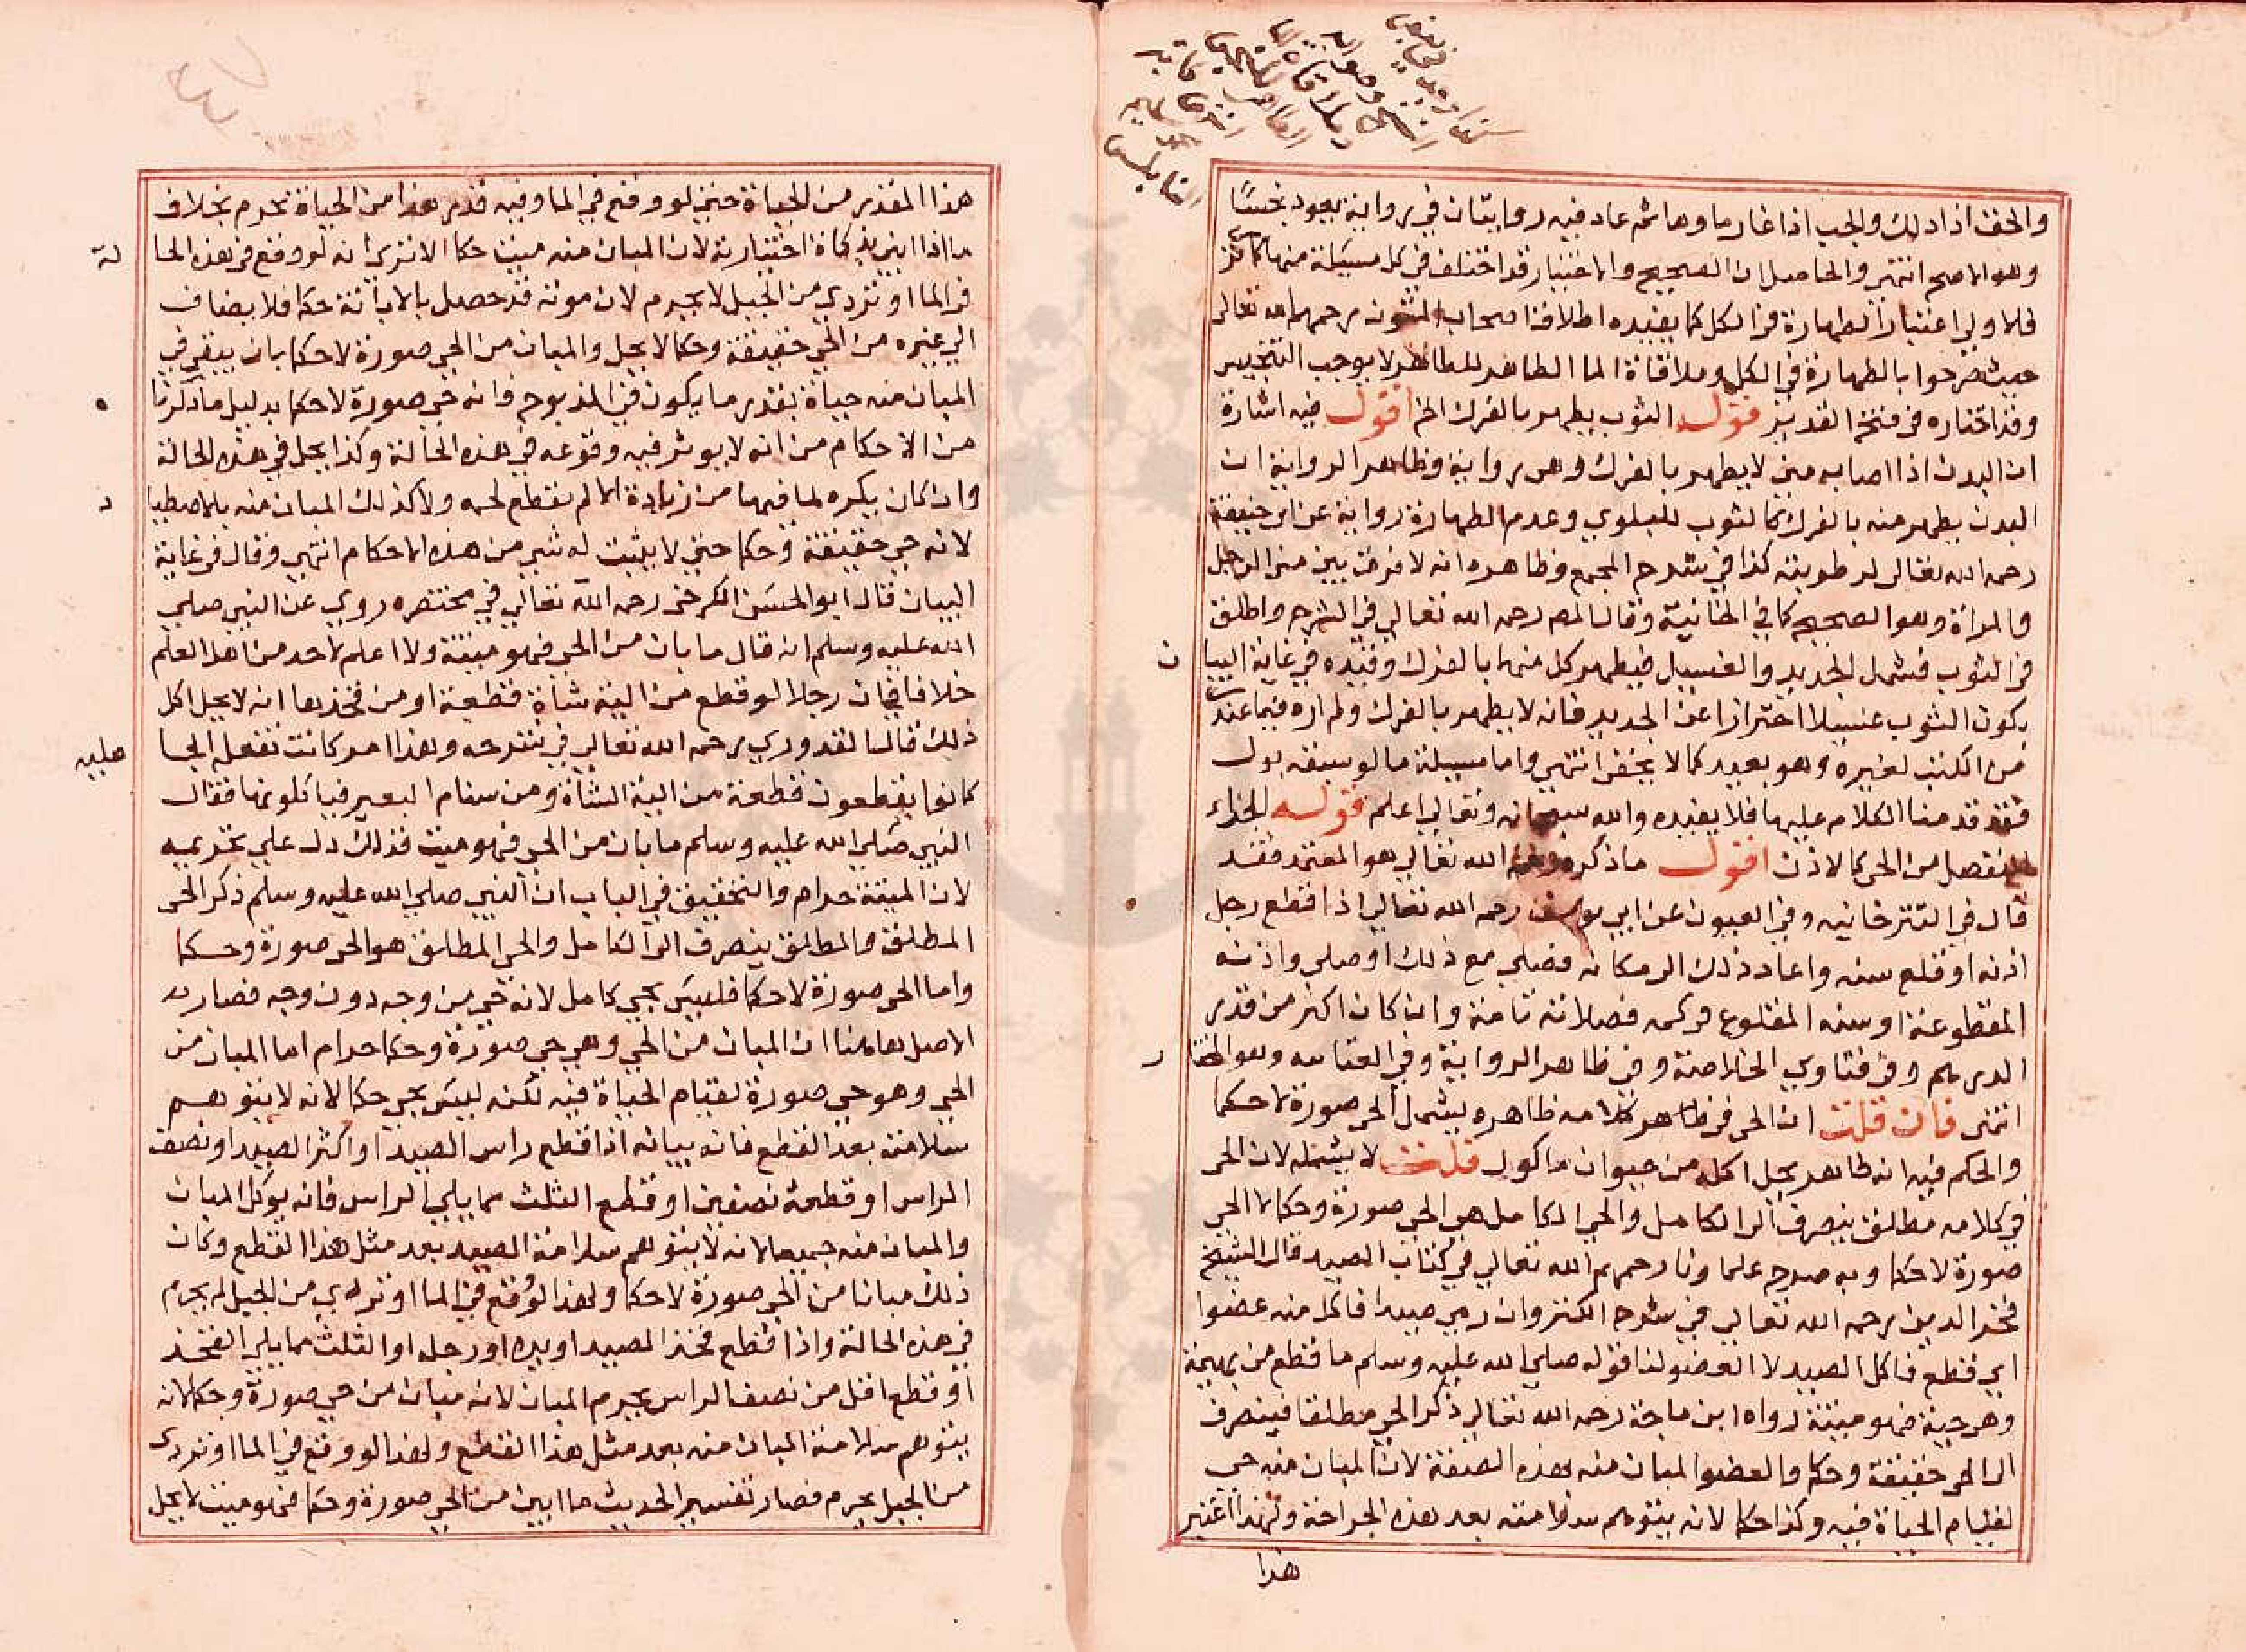 والخف اذا دلك والجب اذا غار ماوها ثم عاد فيه روايتان في رواية يعود نجسا
وهو الاصح انتهى والحاصل ان الصحيح والاختيار قد اختلف في كل مسئلة منها كما ترى
فالاولى اعتبار الطهارة في الكل كما يفيده اطلاق اصحاب المتون رحمهم الله تعالى
حيث صرحوا بالطهارة في الكل وملاقاة الما الطاهر للطاهر لا يوجب التنجيس
وقد اختاره في فتح القدير قوله الثوب يطهر بالفرك الخ اقول فيه اشارة
ان البدن اذا اصابه مني لا يطهر بالفرك وهى رواية وظاهر الرواية ان
البدن يطهر منه بالفرك كالثوب للبلوي وعدم الطهارة رواية عن ابى حنيفة
رحمه الله تعالى لرطوبته كذا في شرح المجمع وظاهره انه لا فرق بين مني الرجل
والمراة وهو الصحيح كما في الخانية وقال المص رحمه الله تعالي في الشرح واطلق
في الثوب فشمل الجديد والغسيل فيطهر كل منهما بالفرك وقيده في غاية البيا ن
بكون الثوب غسيلا احترازا عن الجديد فانه لا يطهر بالفرك ولم اره فيما عندنا
من الكتب لغيره وهو بعيد كما لا يخفى انتهى واما مسيلة ما لو سبقه بول
فقد قدمنا الكلام عليها فلا يفيده والله سبحانه وتعالي اعلم قوله الجزاء
المنفصل من الحي كالاذن اقول ماذكره رحمه الله تعالي هو المعتمد فقد
قال في التترخانيه وفي العيون عن ابي يوسف رحمه الله تعالي اذا قطع رجل
اذنه او قلع سنه واعاد ذلك الى مكانه فصلى مع ذلك او صلى واذنه
المقطوعة او سنه المقلوع في كمه فصلاته تامة وان كان اكثر من قدر
الدرهم وفي فتاوي الخلاصة وفي ظاهر الرواية وفي العتابيه وهو المختا ر
انتهى فان قلت ان الحى في ظاهر كلامه ظاهره يشمل الحي صورة لا حكما
والحكم فيه انه طاهر يحل اكله من حيوان ماكول قلت لا يشمله لان الحى
في كلامه مطلق ينصرف الى الكامل والحي الكامل هى الحي صورة وحكما لا الحي
صورة لا حكما وبه صرح علماونا رحمهم الله تعالي في كتاب الصيد قال الشيخ
فخر الدين رحمه الله تعالي في شرح الكنز وان رمى صيدا فاكما منه عضوا
اي قطع فاكل الصيد لا العضو لنا قوله صلي الله عليه وسلم ما قطع من بهيمة
وهي حية فهو ميتة رواه ابن ماجة رحمه الله تعالى ذكر الحي مطلقا فينصرف
الى الحي حقيقة وحكما والعضو المبان منه بهذه الصفة لان المبان منه حي
لقيام الحياة فيه وكذا حكما لانه يتوهم سلامته بعد هذه الجراحة ولهذا اعتبر
هذا
هذا القدر من الحياة حتى لو وقع في الما وفيه قدر هذا من الحياة تحرم بخلاف
ما اذا ابين بذكاة اختيارية لان المبان منه ميت حكما الا ترى انه لو وقع في هذه الحا لة
في الما او تردي من الجبل لا يحرم لان موته قد حصل بالابانة حكما فلا يضاف
الى غيره من الحي حقيقة وحكما لا يحل والمبان من الحي صورة لا حكما بان يبقى في
المبان منه حياة بقدر ما يكون في المذبوح فانه حي صورة لا حكما بدليل ما ذكرنا ه
من الاحكام من انه لا يوثر فيه وقوعه في هذه الحالة وكذا يحل في هذه الحالة
وان كان يكره لما فيها من زيادة الالم بقطع لحمه ولا كذلك المبان منه بالاصطيا د
لانه حي حقيقة وحكما حتى لا يثبت له شي من هذه الاحكام انتهى وقال في غاية
البيان قال ابو الحسن الكرخي رحمه الله تعالي في مختصره روي عن النبي صلي
الله عليه وسلم انه قال ما بان من الحي فهو ميتة ولا اعلم لاحد من اهل العلم
خلافا في ان رجلا لو قطع من الية شاة قطعة او من فخذها انه لا يحل اكل
ذلك قال القدوري رحمه الله تعالي في شرحه وهذا امر كانت تفعله الجا هلية
كانوا يقطعون قطعة من الية الشاة ومن سنام البعير فياكلونها فقال
النبي صلي الله عليه وسلم ما بان من الحي فهو ميت فذلك دل علي تحريمه
لان الميتة حرام والتحقيق في الباب ان النبي صلي الله عليه وسلم ذكر الحي
المطلق والمطلق ينصرف الى الكامل والحي المطلق هو الحي صورة وحكما
واما الحي صورة لا حكما فليس بحي كامل لانه حي من وجه دون وجه فصار
الاصل هاهنا ان المبان من الحي وهي حي صورة وحكما حرام اما المبان من
الحي وهو حي صورة لقيام الحياة فيه لكنه ليس بحي حكما لانه لا يتوهم
سلامته بعد القطع فانه بيانه اذا قطع راس الصيد او اكثر الصيد او نصف
الراس او قطعه نصفين او قطع الثلث مما يلي الراس فانه يوكل المبان
والمبان منه جميعا لانه لا يتوهم سلامة الصيد بعد مثل هذا القطع وكان
ذلك مبانا من الحي صورة لا حكما ولهذا لو وقع في الما او تردي من الجبل لم يحرم
في هذه الحالة واذا قطع فخذ الصيد او يده او رجله او الثلث مما يلي الفخذ
او قطع اقل من نصف الراس يحرم المبان لانه مبان من حي صورة وحكما لانه
يتوهم سلامة المبان منه بعد مثل هذا القطع ولهذا لو وقع في الما او تردى
من الجبل يحرم فصار تفسير الحديث ما ابين من الحي صورة وحكما فهو ميت لا يحل